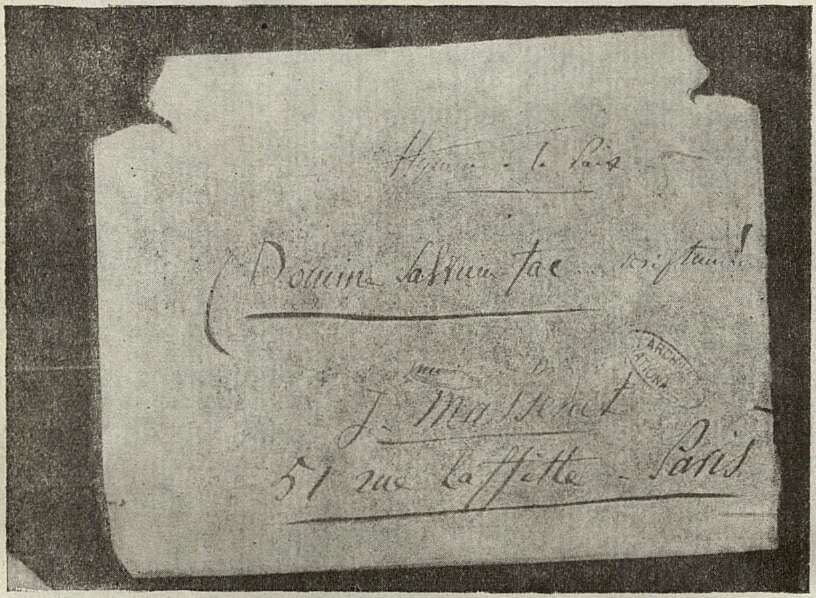 Hymne à la Paix
(Domine Salvum fac scriptum!
J. Massenet
51 rue Laffitte - Paris
ARCHI
NATIONA